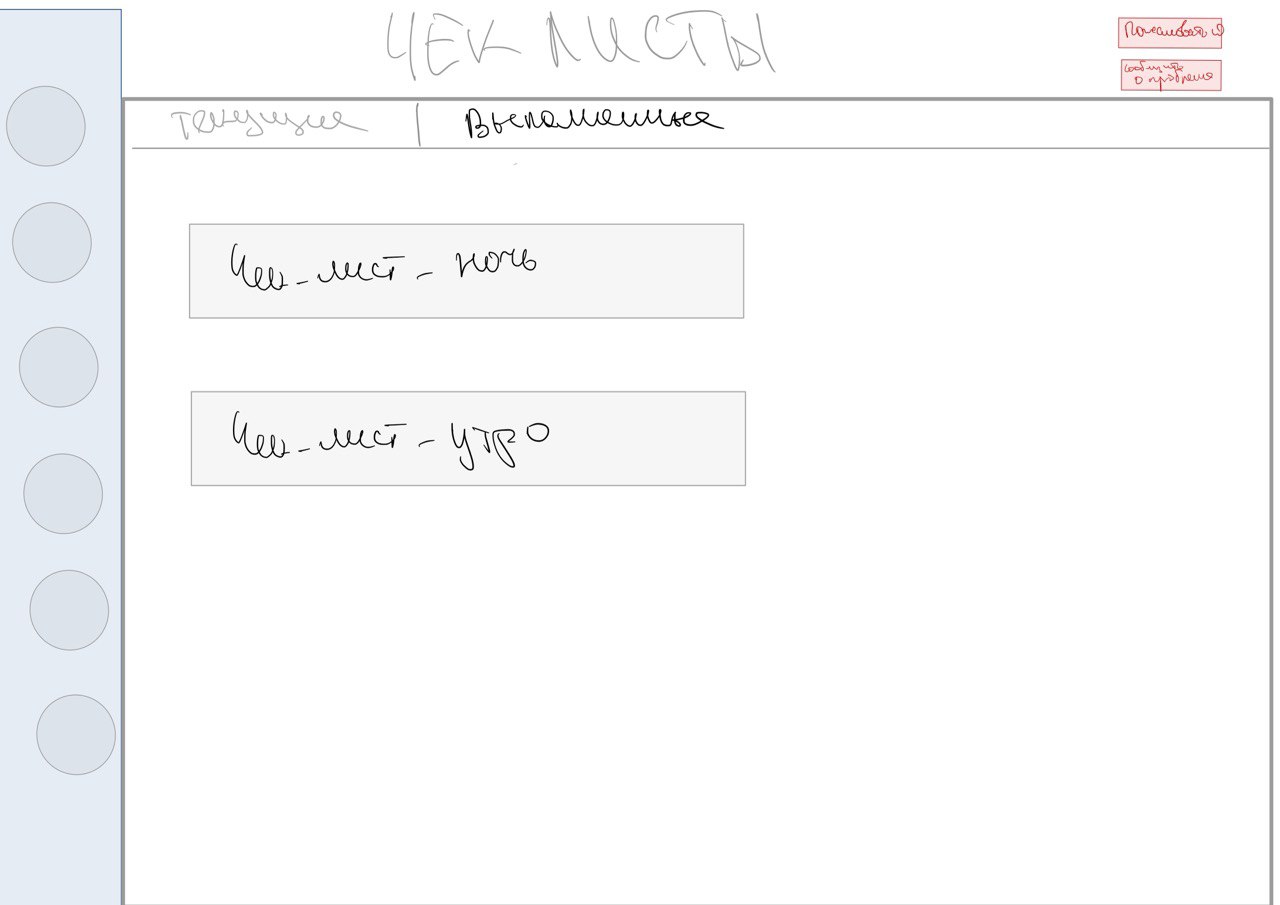 ЧЕК ЛИСТЫ
Пожаловаться
сообщить
о проблеме
текущие | Выполненные
Чек-лист - ночь
Чек-лист - утро